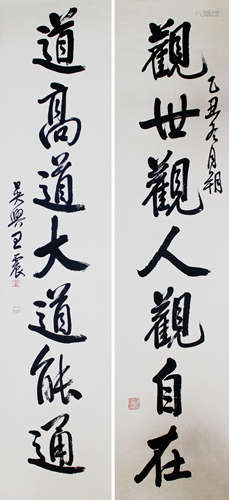 觀世觀人觀自在
乙丑冬月朔
道高道大道能通
吳興王震